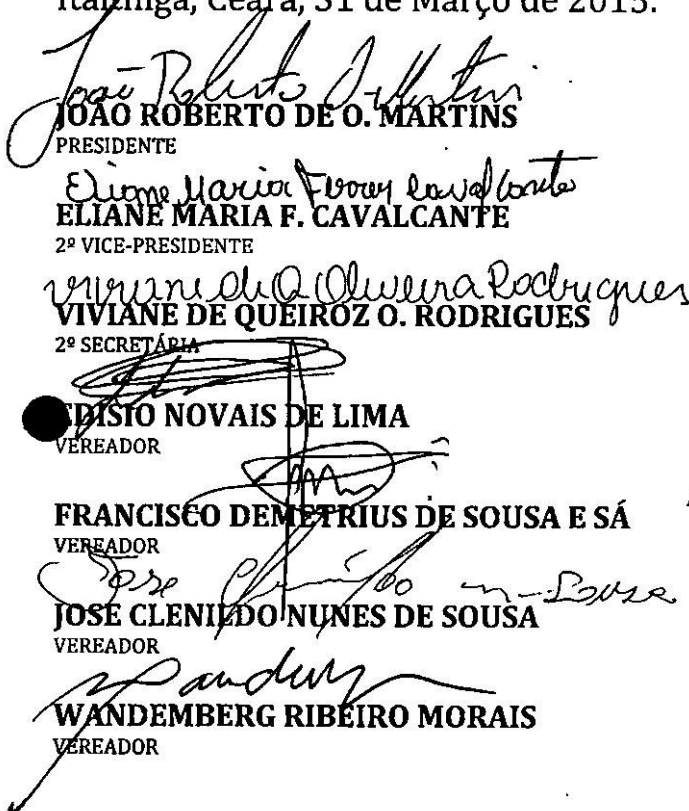 Itaitinga, Ceará, 31 de Março de 2015.
João Roberto O. Martins
JOÃO ROBERTO DE O. MARTINS
PRESIDENTE
Eliane Maria Cavalcante
ELIANE MARIA F. CAVALCANTE
2º VICE-PRESIDENTE
Viviane de Q Oliveira Rodrigues
VIVIANE DE QUEIROZ O. RODRIGUES
2º SECRETÁRIA
EDISIO NOVAIS DE LIMA
VEREADOR
FRANCISCO DEMETRIUS DE SOUSA E SÁ
VEREADOR
Jose Sousa
JOSE CLENILDO NUNES DE SOUSA
VEREADOR
WANDEMBERG RIBEIRO MORAIS
VEREADOR